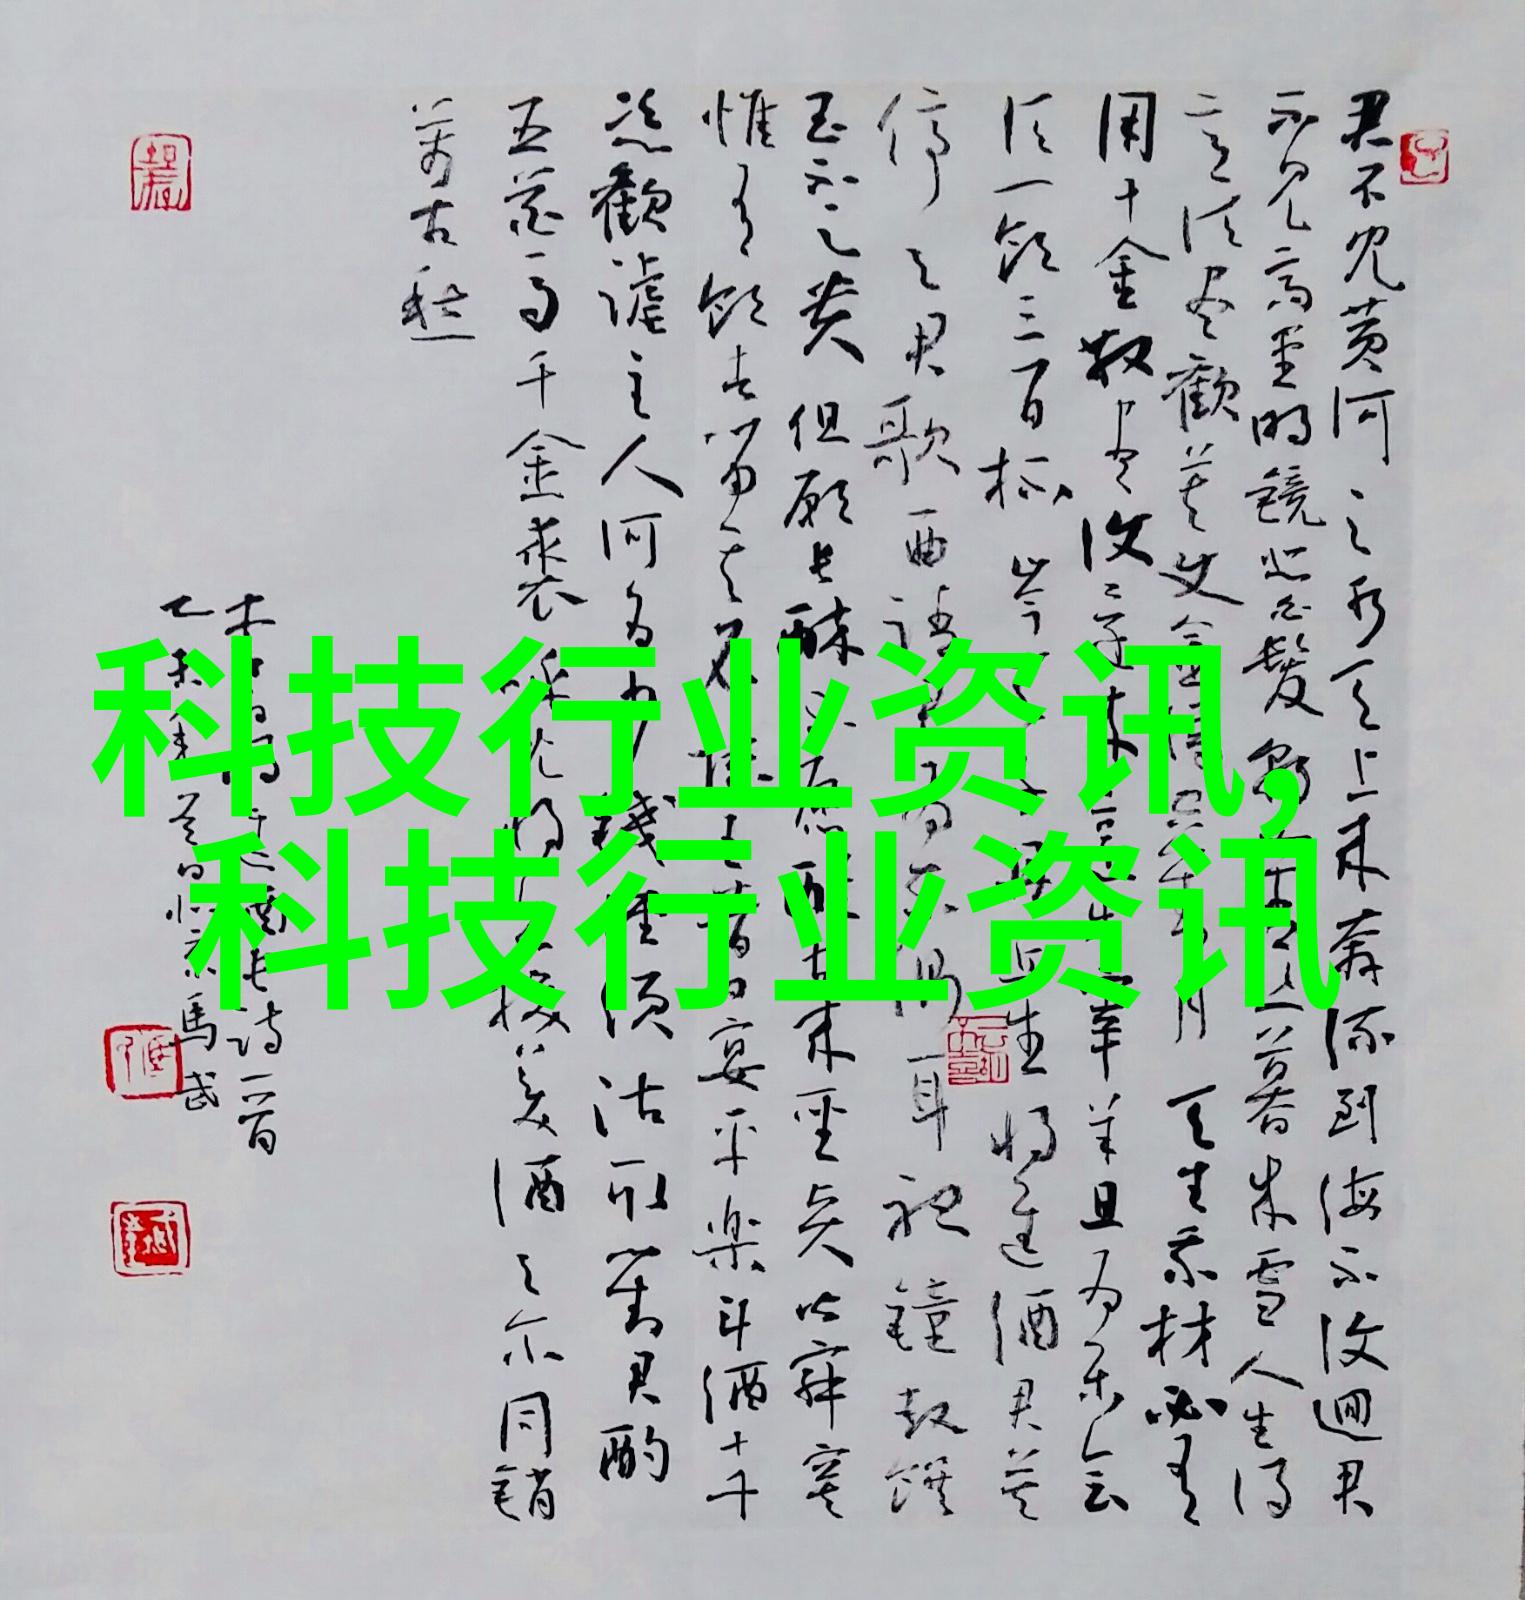 科技行业资讯,
科技行业资讯
君不见黄河之水天上来奔流到海不復迴君
不见高堂明镜悲白髮朝如丝暮成雪人生得
意须尽歡莫使金樽空月天生我材必有
用千金散尽復来烹牛宰羊且为乐会
须一饮三百杯岑丘生将进酒君莫
停与君歌曲请君为我倾耳听鐘鼓馔
玉不足贵但愿长醉不愿醒古来圣贤皆寂寞
惟有饮者留其名陈王昔日宴平樂斗酒十千
恣歡謔主人何为少钱径须沽取对君酌
五花马千金裘呼儿将出换美酒与尔同销
万古愁
诗一首
乙未年馬武